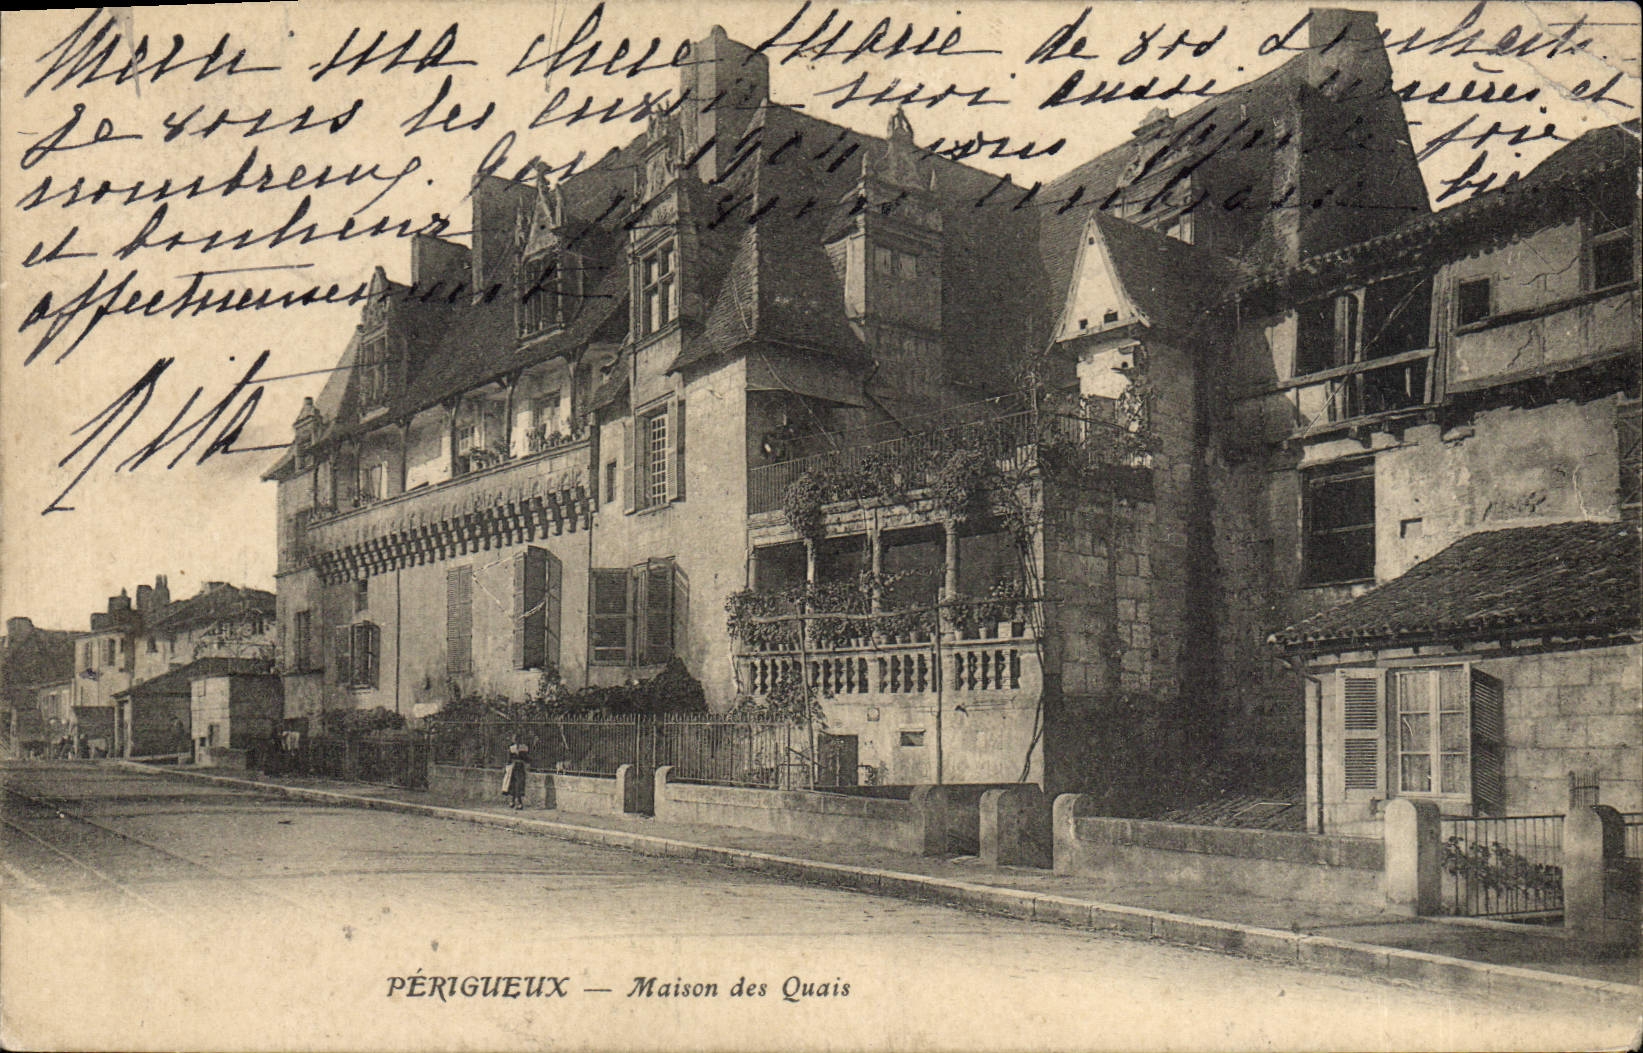 Merci ma chère Marie de vos souhaits.
Je vous les envoie moi aussi sincères et
nombreux. Que 1904 vous apporte joie
et bonheur je vous embrasse bien
affectueusement
Rita
PÉRIGUEUX — Maison des Quais